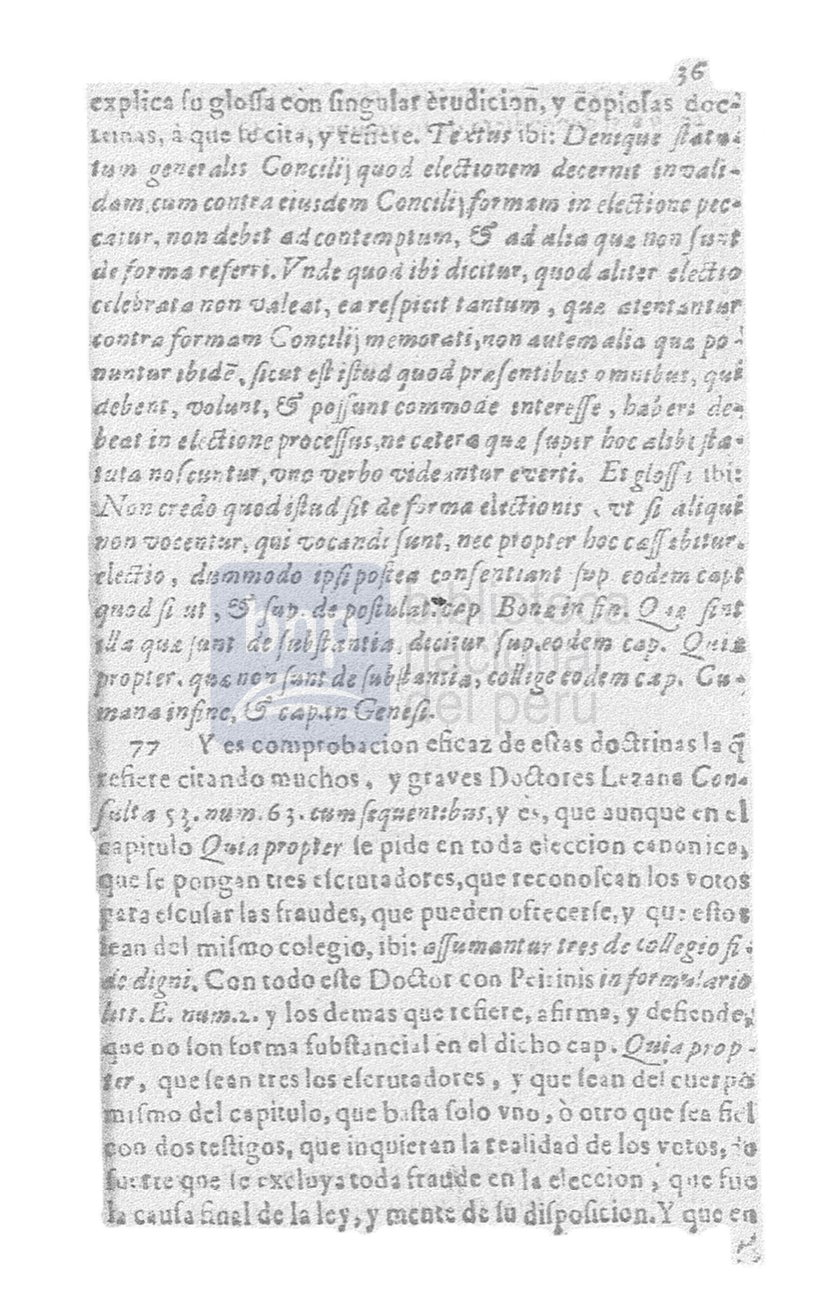 36
explica su glossa con singular èrudicion, y copiosas doc-
trinas, à que se cita, y refiere. Textus ibi: Denique statu-
tum generalis Concilij quod electionem decernit invali-
dam, cum contra eiusdem Concilij formam in electione pec-
catur, non debet ad contemptum, & ad alia quæ non sunt
de forma referri. Vnde quod ibi dicitur, quod aliter electio
celebrata non valeat, ea respicit tantum, quæ atentantur
contra formam Concilij memorati, non autem alia quæ po-
nuntur ibidē, sicut est istud quod præsentibus omnibus, qui
debent, volunt, & possunt commode interesse, haberi de-
beat in electione processus, ne cætera quæ super hoc alibi sta-
tuta noscuntur, vno verbo videantur everti. Et glossa ibi:
Non credo quod istud sit de forma electionis, vt si aliqui
non vocentur, qui vocandi sunt, nec propter hoc cassabitur
electio, dummodo ipsi postea consentiant sup. eodem capt
quod si ut, & sup. de postulat. cap Bonæ in fin. Quæ sint
illa quæ sunt de substantia, dicitur sup. eodem cap. Quia
propter, quæ non sunt de substantia, collige eodem cap. Cu-
mana in fine, & cap. in Genesi.
77 Y es comprobacion eficaz de estas doctrinas la q̄
refiere citando muchos, y graves Doctores Lezana Con-
sulta 53. num. 63. cum sequentibus, y es, que aunque en el
capitulo Quia propter se pide en toda eleccion canonica,
que se pongan tres escrutadores, que reconoscan los votos
para escusar las fraudes, que pueden ofrecerse, y que estos
sean del mismo colegio, ibi: assumantur tres de collegio fi-
de digni. Con todo este Doctor con Peirinis in formulario
litt. E. num. 2. y los demas que refiere, afirma, y defiende,
que no son forma substancial en el dicho cap. Quia prop-
ter, que sean tres los escrutadores, y que sean del cuerpo
mismo del capitulo, que basta solo vno, ò otro que sea fiel
con dos testigos, que inquieran la realidad de los votos, de
suerte que se excluya toda fraude en la eleccion, que fue
la causa final de la ley, y mente de su disposicion. Y que en
biblioteca
nacional
del perú
bnp